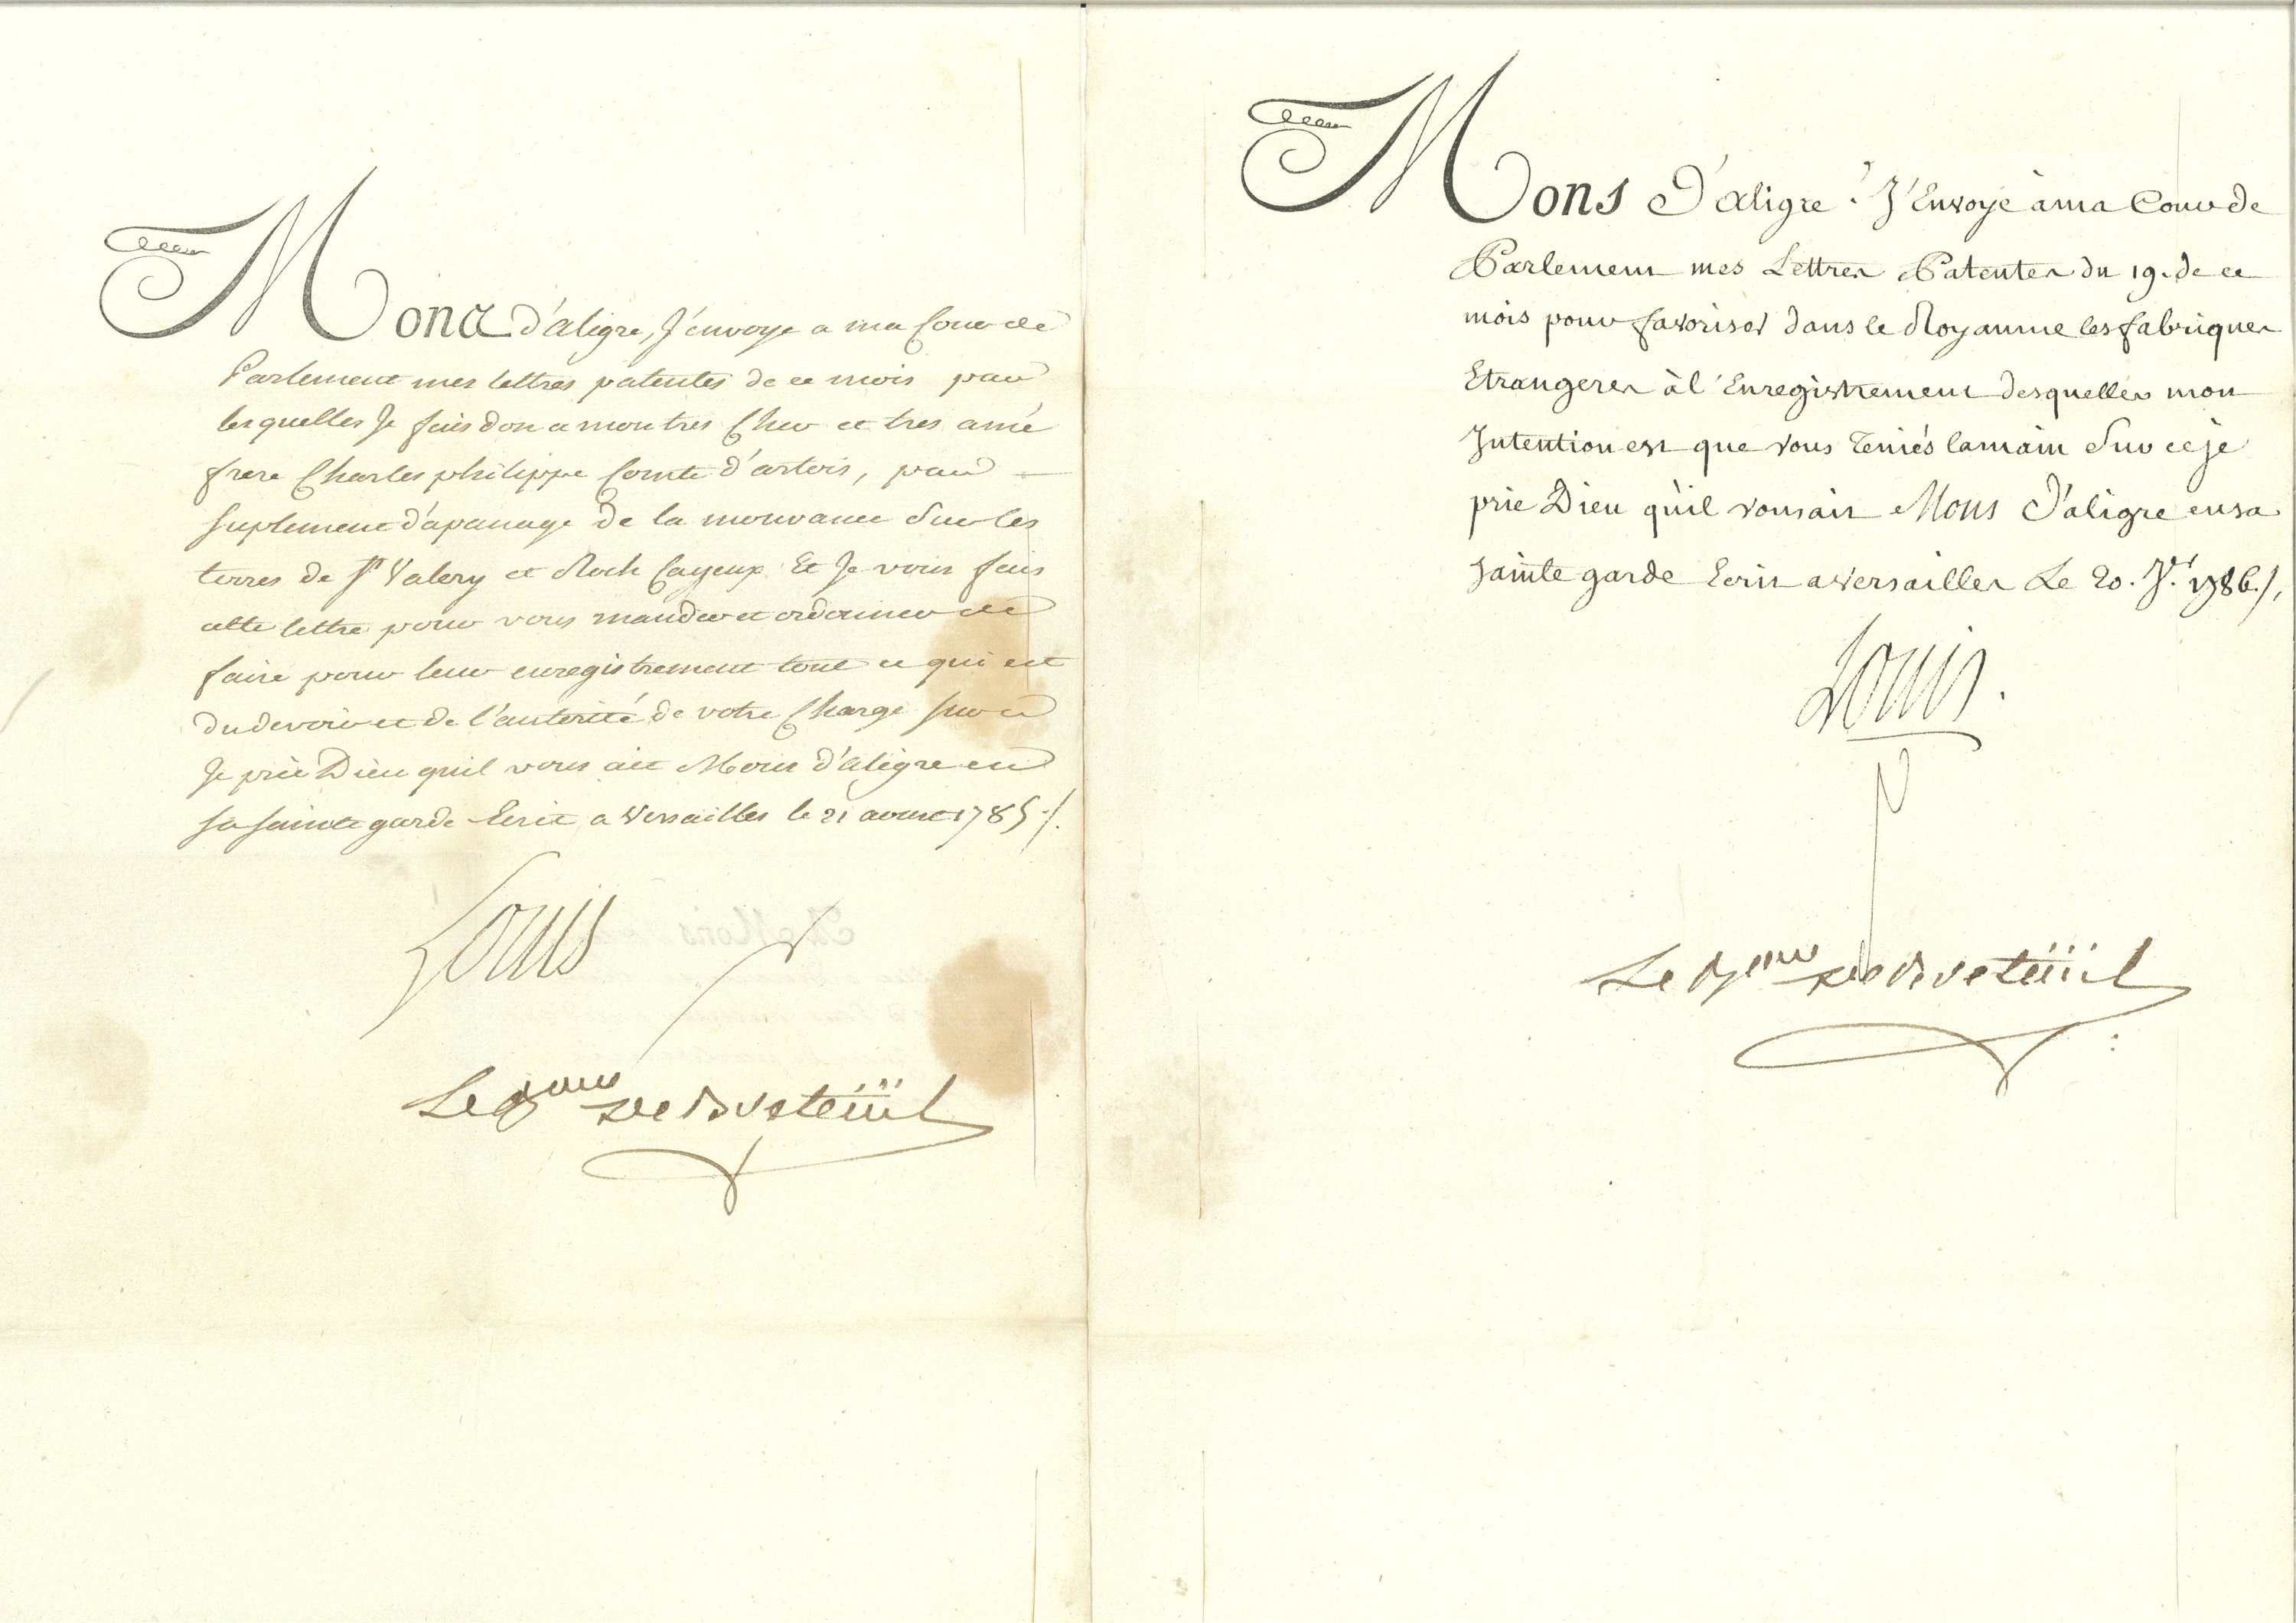 Mons d'aligre, J'envoye a ma Cour de
Parlement mes lettres patentes de ce mois par
lesquelles Je fais don a mon tres Cher et tres amé
frere Charles philippe Comte d'artois, par
suplement d'apanage de la mouvance Sur les
terres de St Valery et Roch Cayeux. Et Je vous fais
cette lettre pour vous mander et ordonner de
faire pour leur enregistrement tout ce qui est
du devoir et de l'autorité de votre Charge sur ce
Je prie Dieu quil vous ait Mons d'aligre en
sa sainte garde Ecrit a Versailles le 21 aoust 1785 ./.
Louis
Le Bon de Breteüil
Mons D'aligre. J'Envoye à ma Cour de
Parlement mes Lettres Patentes du 19. de ce
mois pour favoriser dans le Royaume les fabriques
Etrangeres à l'Enregistrement desquelles mon
Intention est que vous Teniés la main Sur ce je
prie Dieu qu'il vous ait Mons D'aligre en sa
sainte garde Ecrit a Versailles Le 20. J.r 1786./.
Louis.
Le Bon de Breteüil